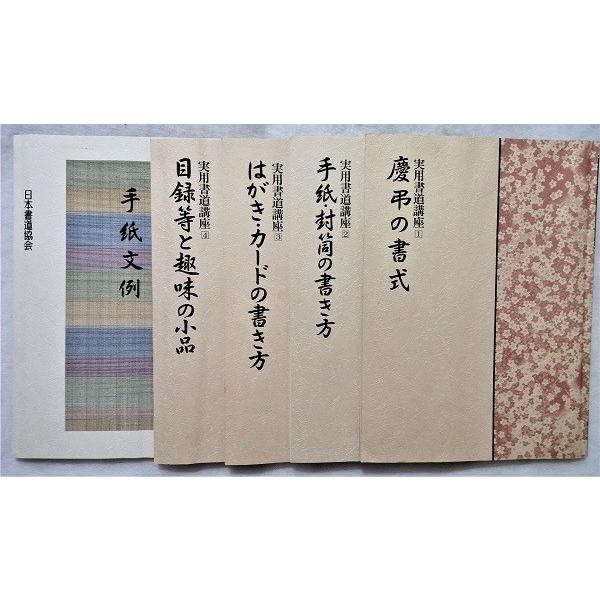 実用書道講座①
慶弔の書式
実用書道講座②
手紙・封筒の書き方
実用書道講座③
はがき・カードの書き方
実用書道講座④
目録等と趣味の小品
手紙文例
日本書道協会